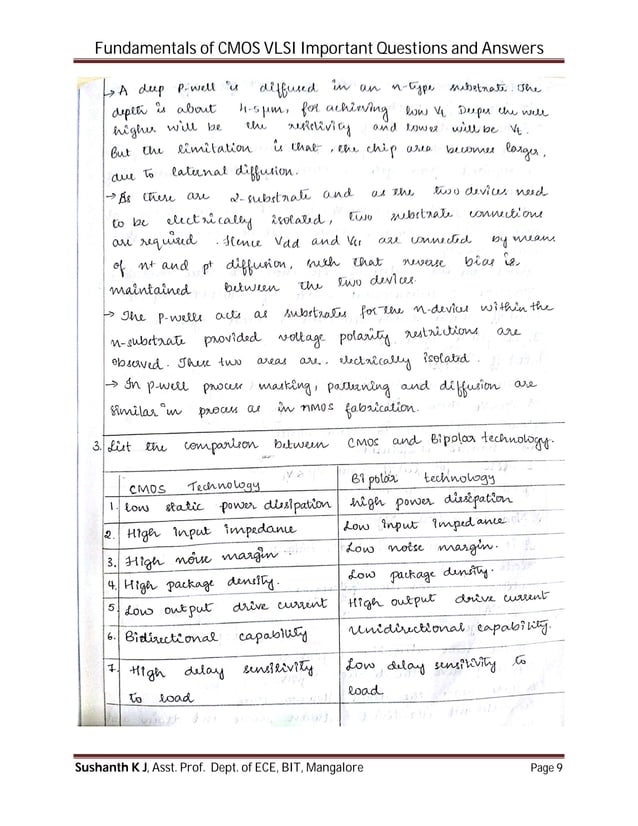 Fundamentals of CMOS VLSI Important Questions and Answers
→ A deep P-well is diffused in an n-type substrate. The
depth is about 4-5μm, for achieving low Vt. Deeper the well
higher will be the resistivity and lower will be Vt.
But the limitation is that, the chip area becomes larger,
due to lateral diffusion.
→ As there are 2-substrate and as the two devices need
to be electrically isolated, two substrate connections
are required. Hence Vdd and Vss are connected by means
of n+ and p+ diffusion, such that reverse bias is
maintained between the two devices.
→ The p-wells acts as substrates for the n-device within the
n-substrate provided voltage polarity restrictions are
observed. These two areas are electrically isolated.
→ In p-well process masking, patterning and diffusion are
similar in process as in nMOS fabrication.
3. List the comparison between CMOS and Bipolar technology.
CMOS Technology Bipolar technology
1. Low static power dissipation High power dissipation
2. High input impedance Low input impedance
3. High noise margin Low noise margin.
4. High package density. Low package density.
5. Low output drive current High output drive current
6. Bidirectional capability Unidirectional capability.
7. High delay sensitivity Low delay sensitivity to
to load load
Sushanth K J, Asst. Prof. Dept. of ECE, BIT, Mangalore Page 9